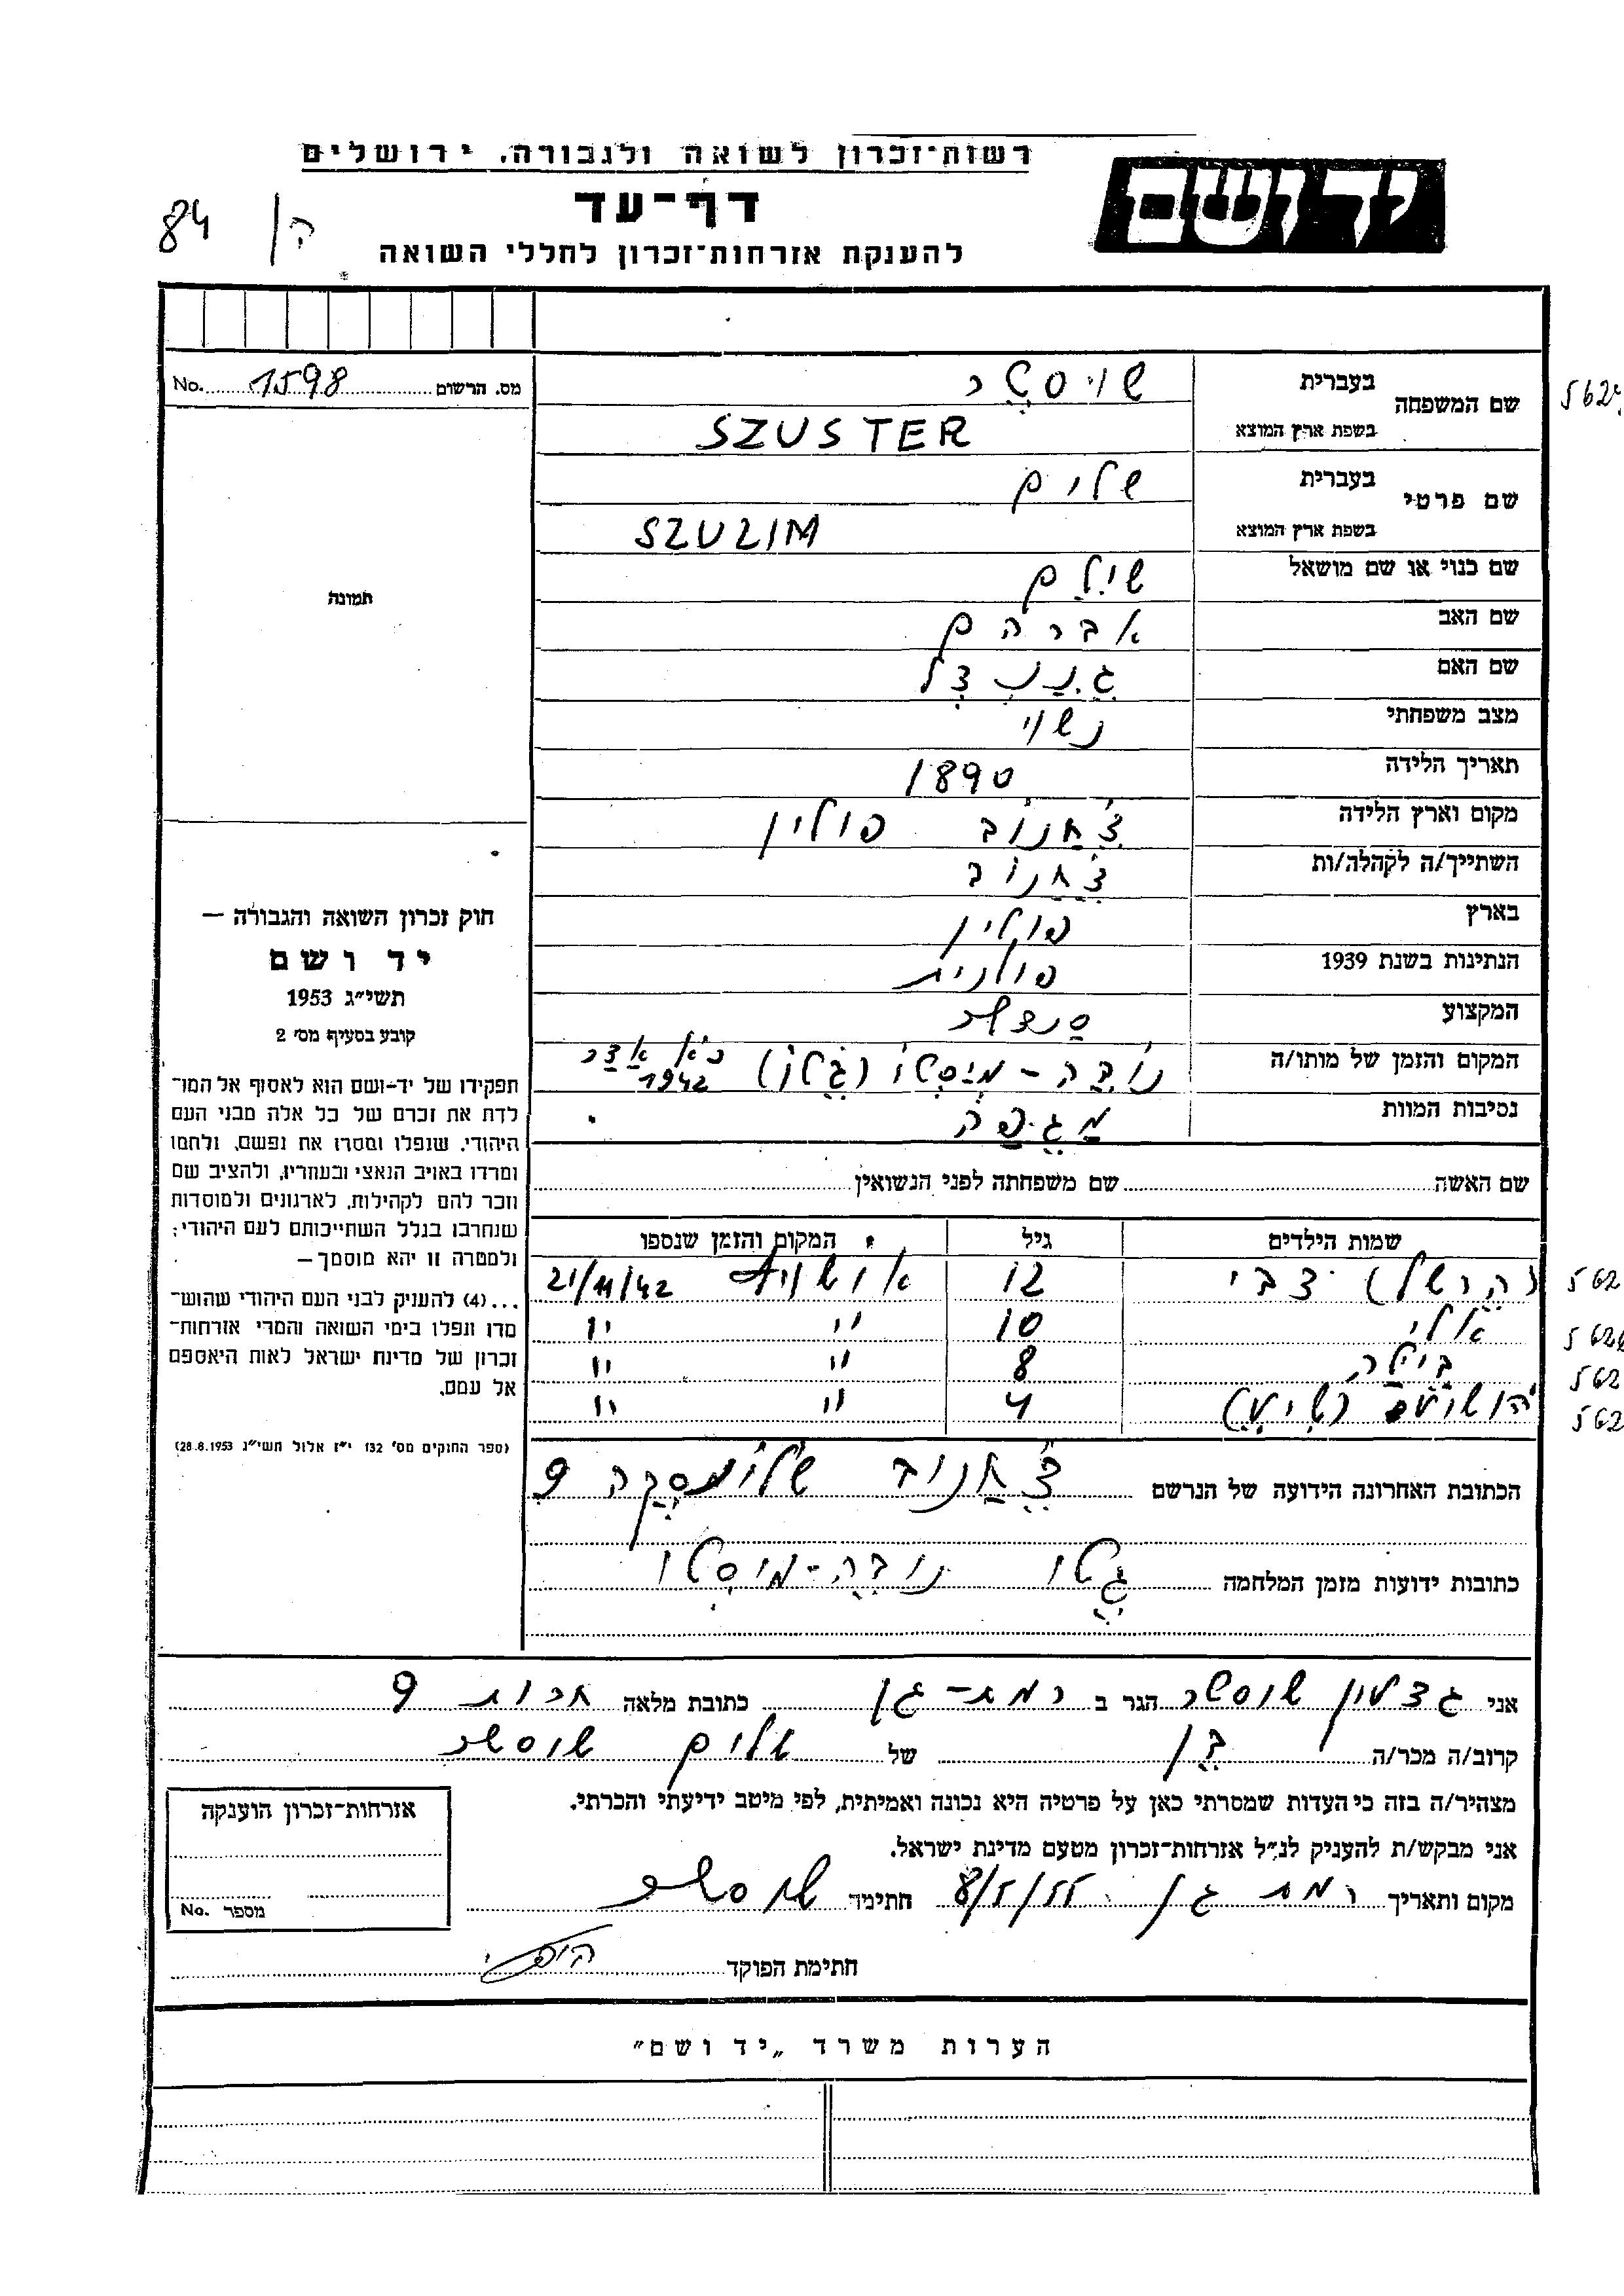 רשות־זכרון לשואה ולגבורה, ירושלים
יד ושם
דף-עד
84 ה/
להענקת אזרחות־זכרון לחללי השואה
שם המשפחה בעברית שוסטר
מס. הרשום 1598 No.
בשפת ארץ המוצא SZUSTER
שם פרטי בעברית שלים
בשפת ארץ המוצא SZULIM
שם כנוי או שם מושאל שילם
שם האב אברהם
שם האם
מצב משפחתי נשוי
תאריך הלידה 1890
מקום וארץ הלידה צ'חנוב פולין
השתייך/ה לקהלה/ות צ'חנוב
בארץ פולין
הנתינות בשנת 1939 פולנית
המקצוע סנדלר
המקום והזמן של מותו/ה נובה-מיסטו (גטו) כ"א אדר 1942
נסיבות המוות מגיפה
תמונה
חוק זכרון השואה והגבורה —
יד ושם
תשי״ג 1953
קובע בסעיף מס׳ 2
תפקידו של יד-ושם הוא לאסוף אל המו־
לדת את זכרם של כל אלה מבני העם
היהודי, שנפלו ומסרו את נפשם, ולחמו
ומרדו באויב הנאצי ובעוזריו, ולהציב שם
וזכר להם לקהילות, לארגונים ולמוסדות
שנחרבו בגלל השתייכותם לעם היהודי;
ולמטרה זו יהא מוסמך—
...(4) להעניק לבני העם היהודי שהוש־
מדו ונפלו בימי השואה והמרי אזרחות־
זכרון של מדינת ישראל לאות היאספם
אל עמם.
(ספר החוקים מס׳ 132 י״ז אלול תשי״ג 28.8.1953)
שם האשה שם משפחתה לפני הנשואין
שמות הילדים גיל המקום והזמן שנספו
(הרשל) צבי 12 אושויץ 21/11/42
אלי 10 " "
בילה 8 " "
יהושע (שיע) 4 " "
הכתובת האחרונה הידועה של הנרשם צ'חנוב 9
כתובות ידועות מזמן המלחמה גטו נובה-מיסטו
אני גדעון שוסטר הגר ב רמת-גן כתובת מלאה חרות 9
קרוב/ה מכר/ה בן של שלים שוסטר
מצהיר/ה בזה כי העדות שמסרתי כאן על פרטיה היא נכונה ואמיתית, לפי מיטב ידיעתי והכרתי.
אני מבקש/ת להעניק לנ״ל אזרחות־זכרון מטעם מדינת ישראל.
מקום ותאריך רמת גן 8/5/55 חתימה שוסטר
אזרחות־זכרון הוענקה
מספר No.
חתימת הפוקד
הערות משרד „יד ושם״